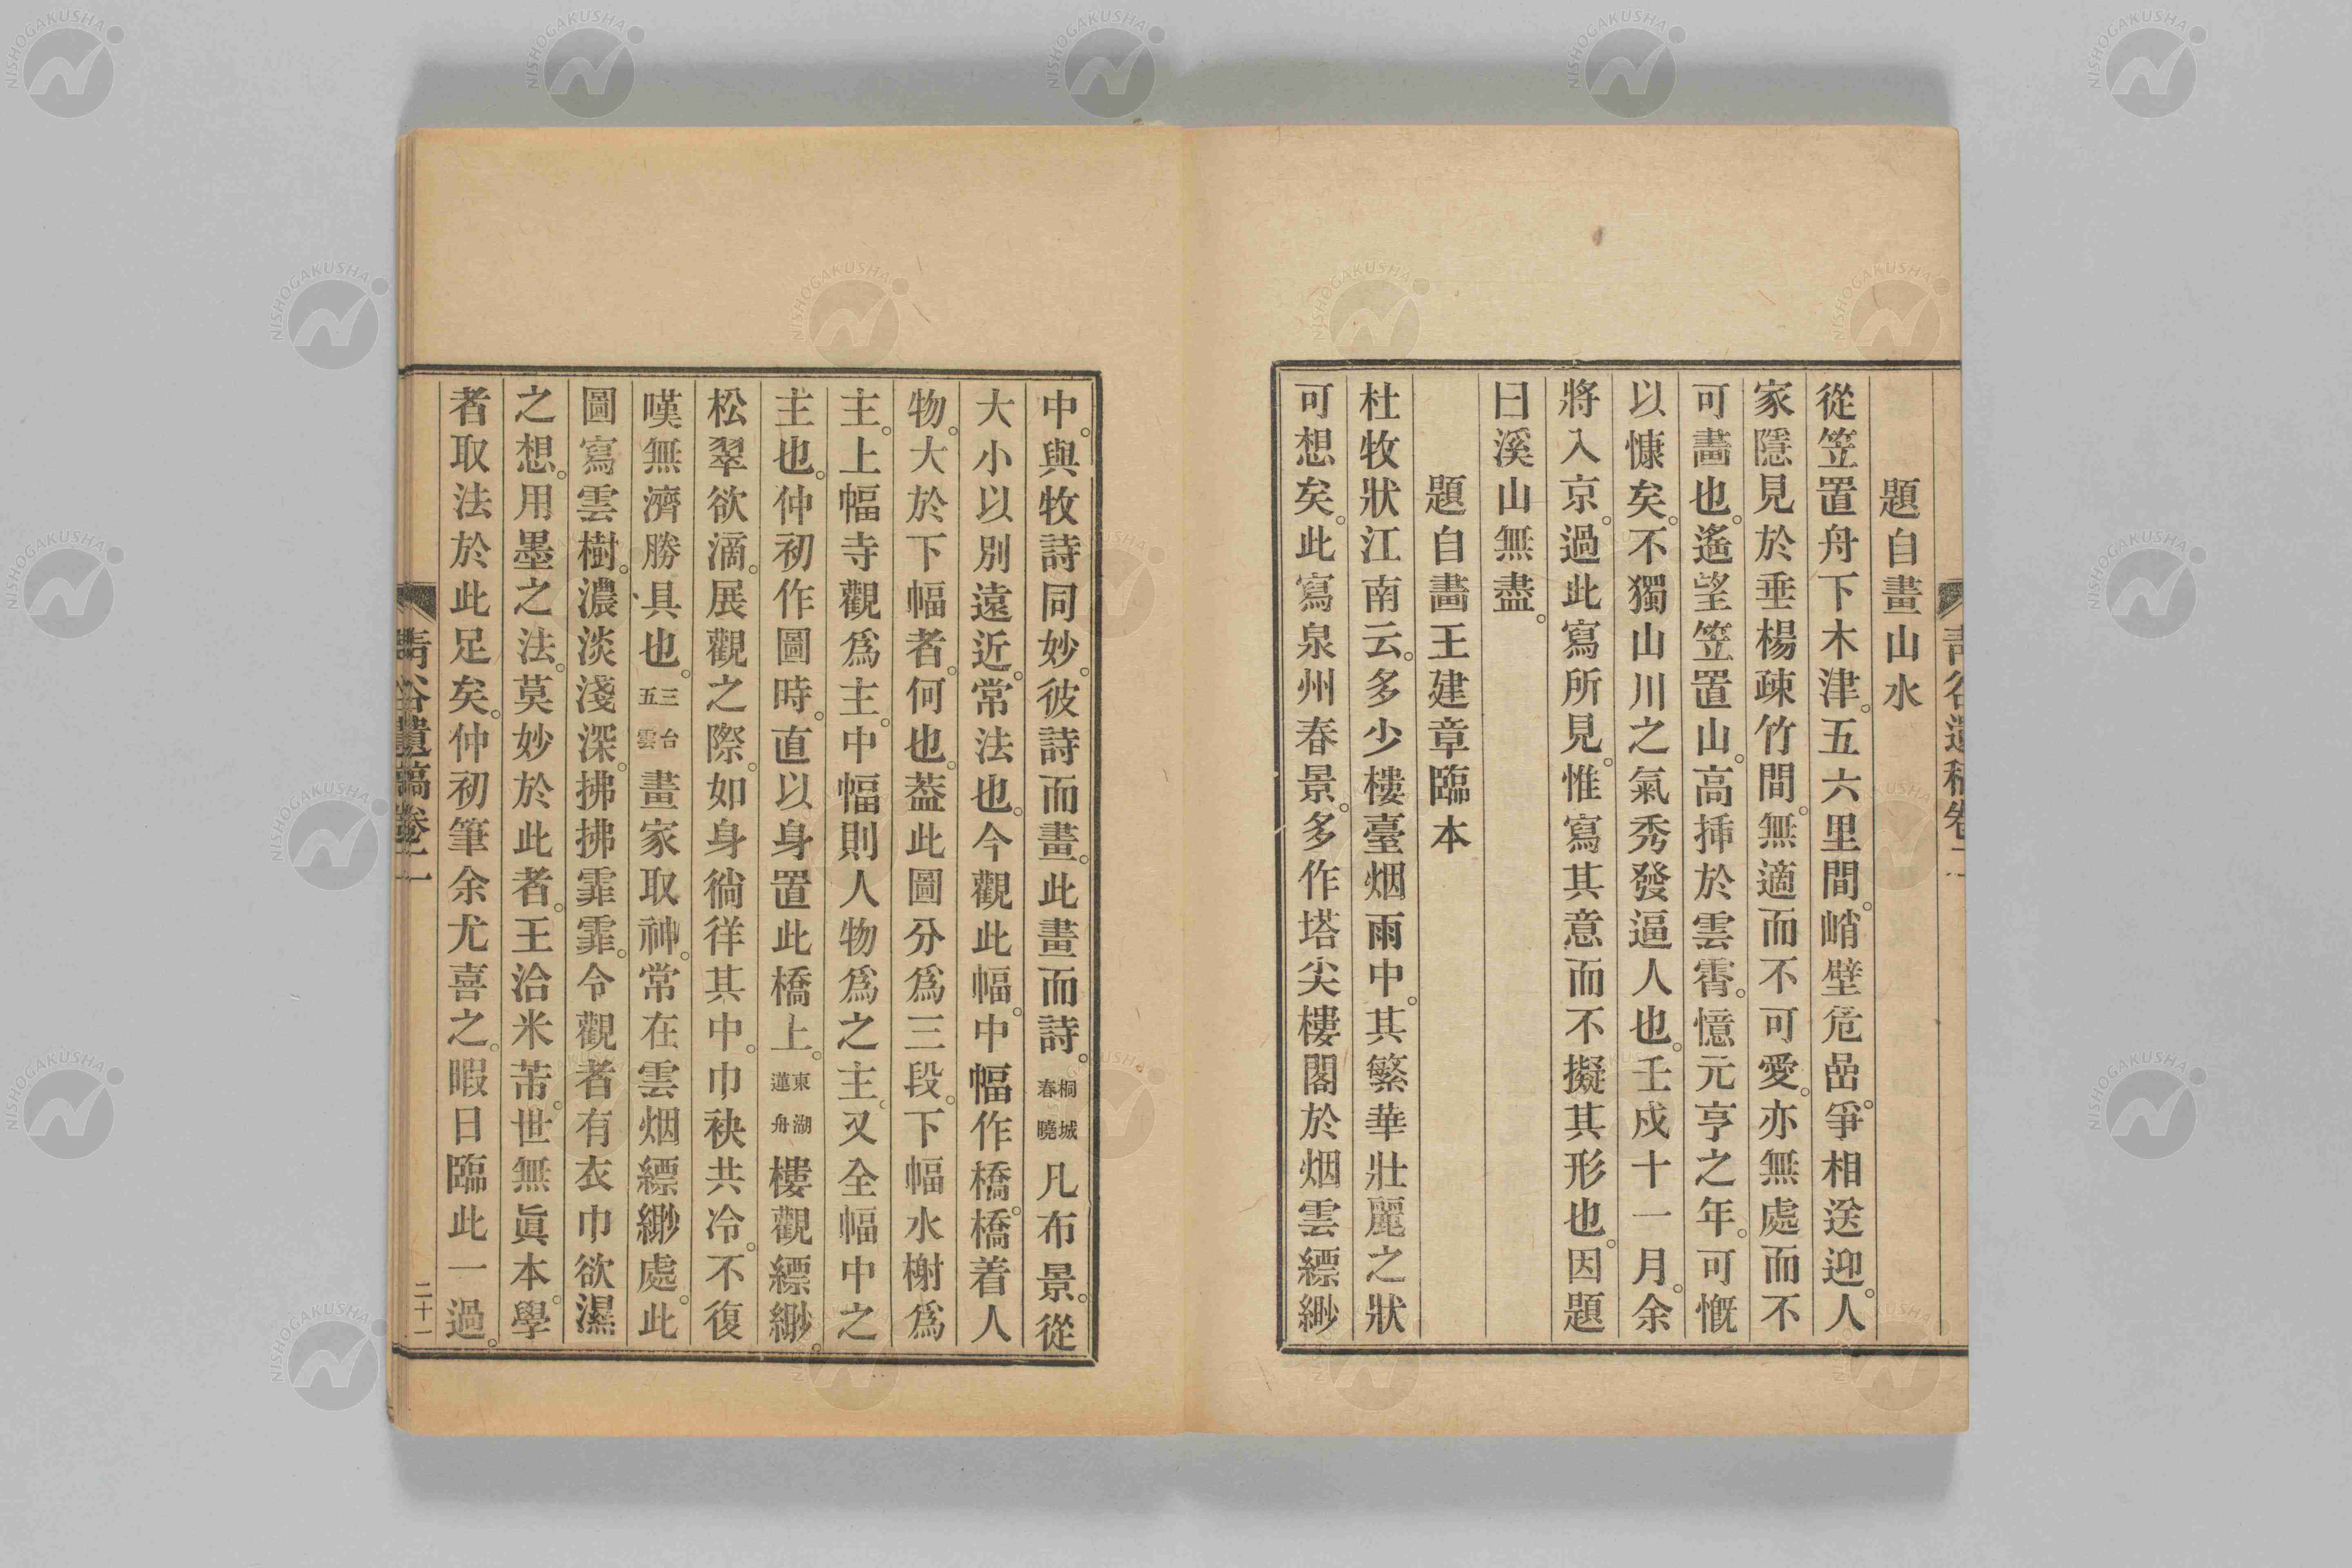 題自畫山水
從笠置舟下木津。五六里間。峭壁危嵒。爭相送迎。人
家隱見於垂楊疎竹間。無適而不可愛。亦無處而不
可畵也。遙望笠置山。高揷於雲霄。憶元亨之年。可慨
以慷矣。不獨山川之氣秀發逼人也。壬戌十一月。余
將入京。過此寫所見。惟寫其意而不擬其形也。因題
曰溪山無盡。
題自畵王建章臨本
杜牧狀江南云。多少樓臺烟雨中。其繁華壯麗之狀
可想矣。此寫泉州春景。多作塔尖樓閣於烟雲縹緲
中。與牧詩同妙。彼詩而畫。此畫而詩。桐城春曉凡布景。從
大小以別遠近。常法也。今觀此幅。中幅作橋。橋着人
物。大於下幅者。何也。葢此圖分爲三段。下幅水榭爲
主。上幅寺觀爲主。中幅則人物爲之主。又全幅中之
主也。仲初作圖時。直以身置此橋上。東湖蓮舟樓觀縹緲。
松翠欲滴。展觀之際。如身徜徉其中。巾袂共冷。不復
嘆無濟勝具也。三台五雲畫家取神。常在雲烟縹緲處。此
圖寫雲樹。濃淡淺深。拂拂霏霏。令觀者有衣巾欲濕
之想。用墨之法。莫妙於此者。王洽米芾。世無眞本。學
者取法於此足矣。仲初筆余尤喜之。暇日臨此一過。
靑谷遺稿卷二
二十一